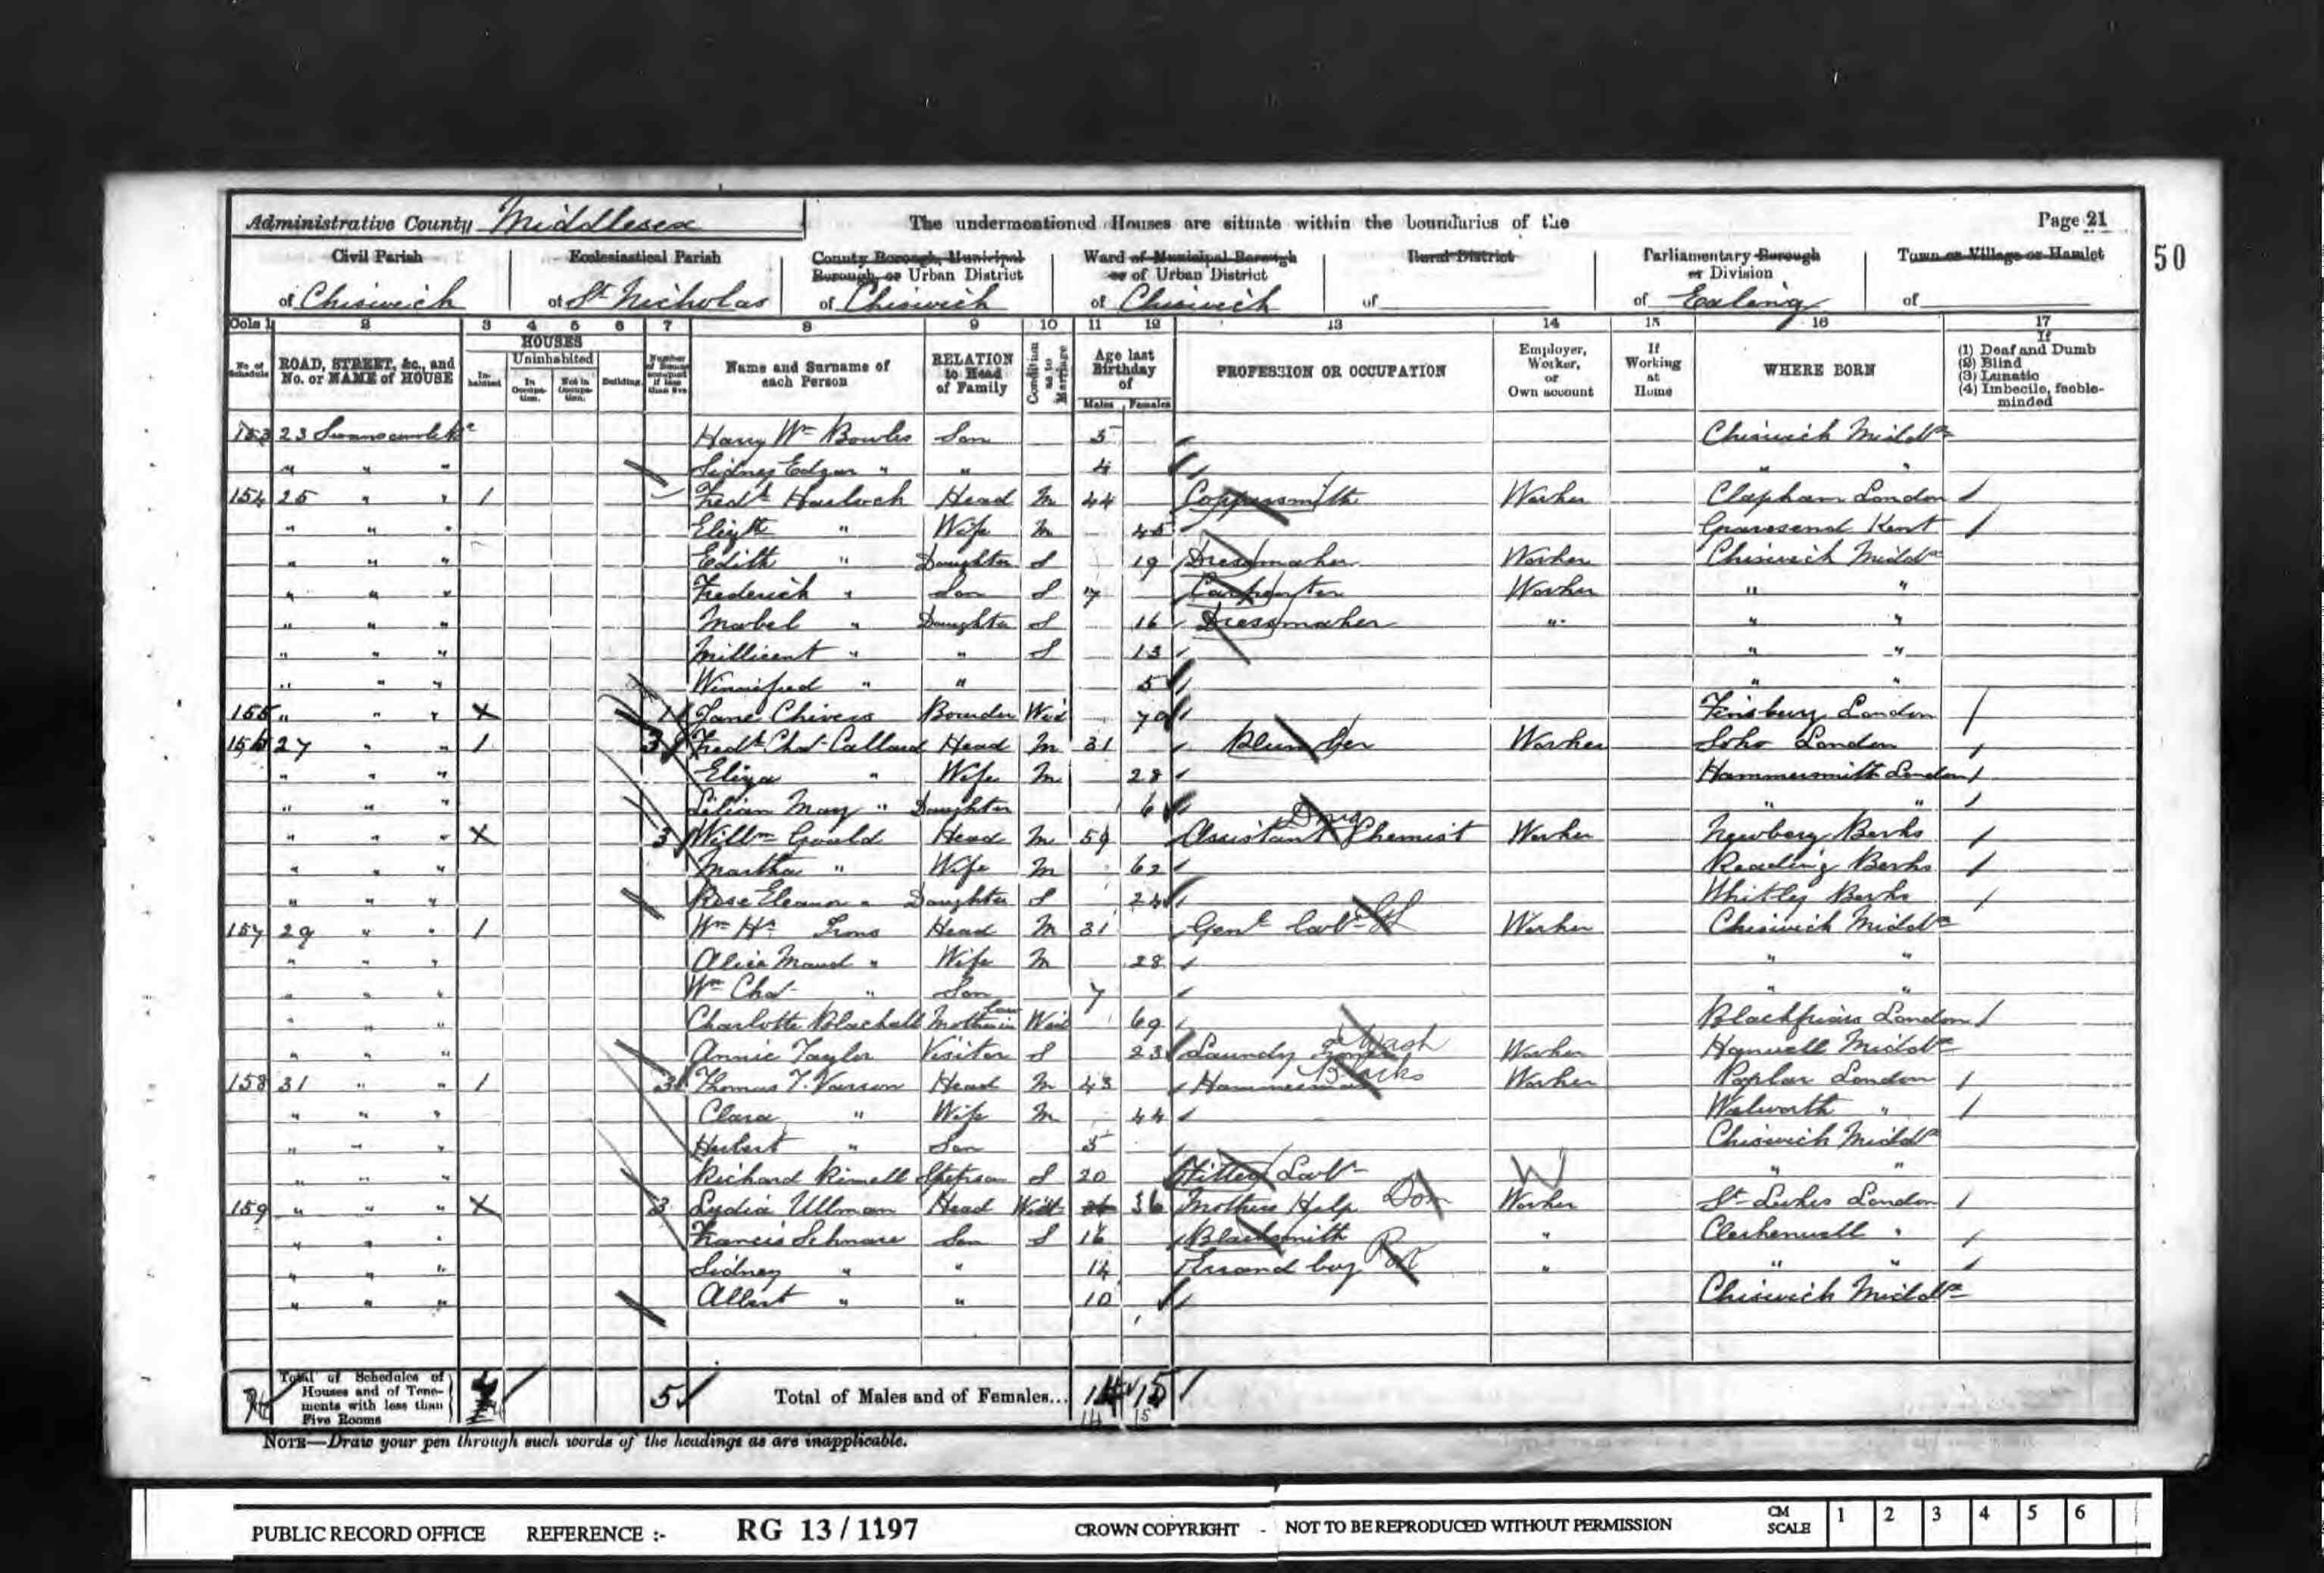 Administrative County Middlesex The undermentioned Houses are situate within the boundaries of the Page 21
50
Civil Parish Ecclesiastical Parish County Borough, Municipal Borough, or Urban District Ward of Municipal Borough or of Urban District Rural District Parliamentary Borough or Division Town or Village or Hamlet
of Chiswick of St Nicholas of Chiswick of Chiswick of of Ealing of
Cols 1 2 3 4 5 6 7 8 9 10 11 12 13 14 15 16 17
No. of Schedule ROAD, STREET, &c., and No. or NAME of HOUSE HOUSES Inhabited Uninhabited In Occupation. Not in Occupation. Building. Number of Rooms occupied if less than five Name and Surname of each Person RELATION to Head of Family Condition as to Marriage Age last Birthday of Males Females PROFESSION OR OCCUPATION Employer, Worker, or Own account If Working at Home WHERE BORN If (1) Deaf and Dumb (2) Blind (3) Lunatic (4) Imbecile, feeble-minded
153 23 Harry Wm Bowles Son 5 Chiswick Middx
" " " Sidney Edgar " " 4 " "
154 25 " " 1 Fredk Head M 44 Coppersmith Worker Clapham London
" " " Elizth " Wife M 45 Gravesend Kent
" " " Edith " Daughter S 19 Dressmaker Worker Chiswick Middx
" " " Frederick " Son S 17 Carpenter Worker " "
" " " Mabel " Daughter S 16 Dressmaker " " "
" " " Millicent " " S 13 " "
" " " Winnifred " " 5 " "
155 " " " X 1 Jane Chivers Boarder Wid 70 Finsbury London
156 27 " " 1 3 Fredk Chas Callard Head M 31 Plumber Worker Soho London
" " " Eliza " Wife M 28 Hammersmith London
" " " Lilian May " Daughter 6 " "
" " " X 3 Willm Gould Head M 59 Assistant Chemist Drug Worker Newbery Berks
" " " Martha " Wife M 62 Reading Berks
" " " Rose Eleanor " Daughter S 24 Whitley Berks
157 29 " " 1 Wm Hy Head M 31 Genl Labr Worker Chiswick Middx
" " " Alice Maud " Wife M 28 " "
" " " Wm Chas " Son 7 " "
" " " Charlotte Blackall Mother in Law Wid 69 Blackfriars London
" " " Annie Taylor Visitor S 23 Laundry Wash Worker Hanwell Middx
158 31 " " 1 3 Thomas T. Head M 43 Hammerman Blacks Worker Poplar London
" " " Clara " Wife M 44 Walworth "
" " " Herbert " Son 5 Chiswick Middx
" " " Richard Rimell Stepson S 20 Fitters Labr W " "
159 " " " X 3 Lydia Ullman Head Wid 36 Mothers Help Dom Worker St Lukes London
" " " Francis Schnare Son S 16 Blacksmith " Clerkenwell "
" " " Sidney " " 14 Errand boy " " "
" " " Albert " " 10 Chiswick Middx
Total of Schedules of Houses and of Tenements with less than Five Rooms 5 Total of Males and of Females... 14 15
14 15
NOTE—Draw your pen through such words of the headings as are inapplicable.
PUBLIC RECORD OFFICE REFERENCE :- RG 13 / 1197 CROWN COPYRIGHT - NOT TO BE REPRODUCED WITHOUT PERMISSION CM SCALE 1 2 3 4 5 6